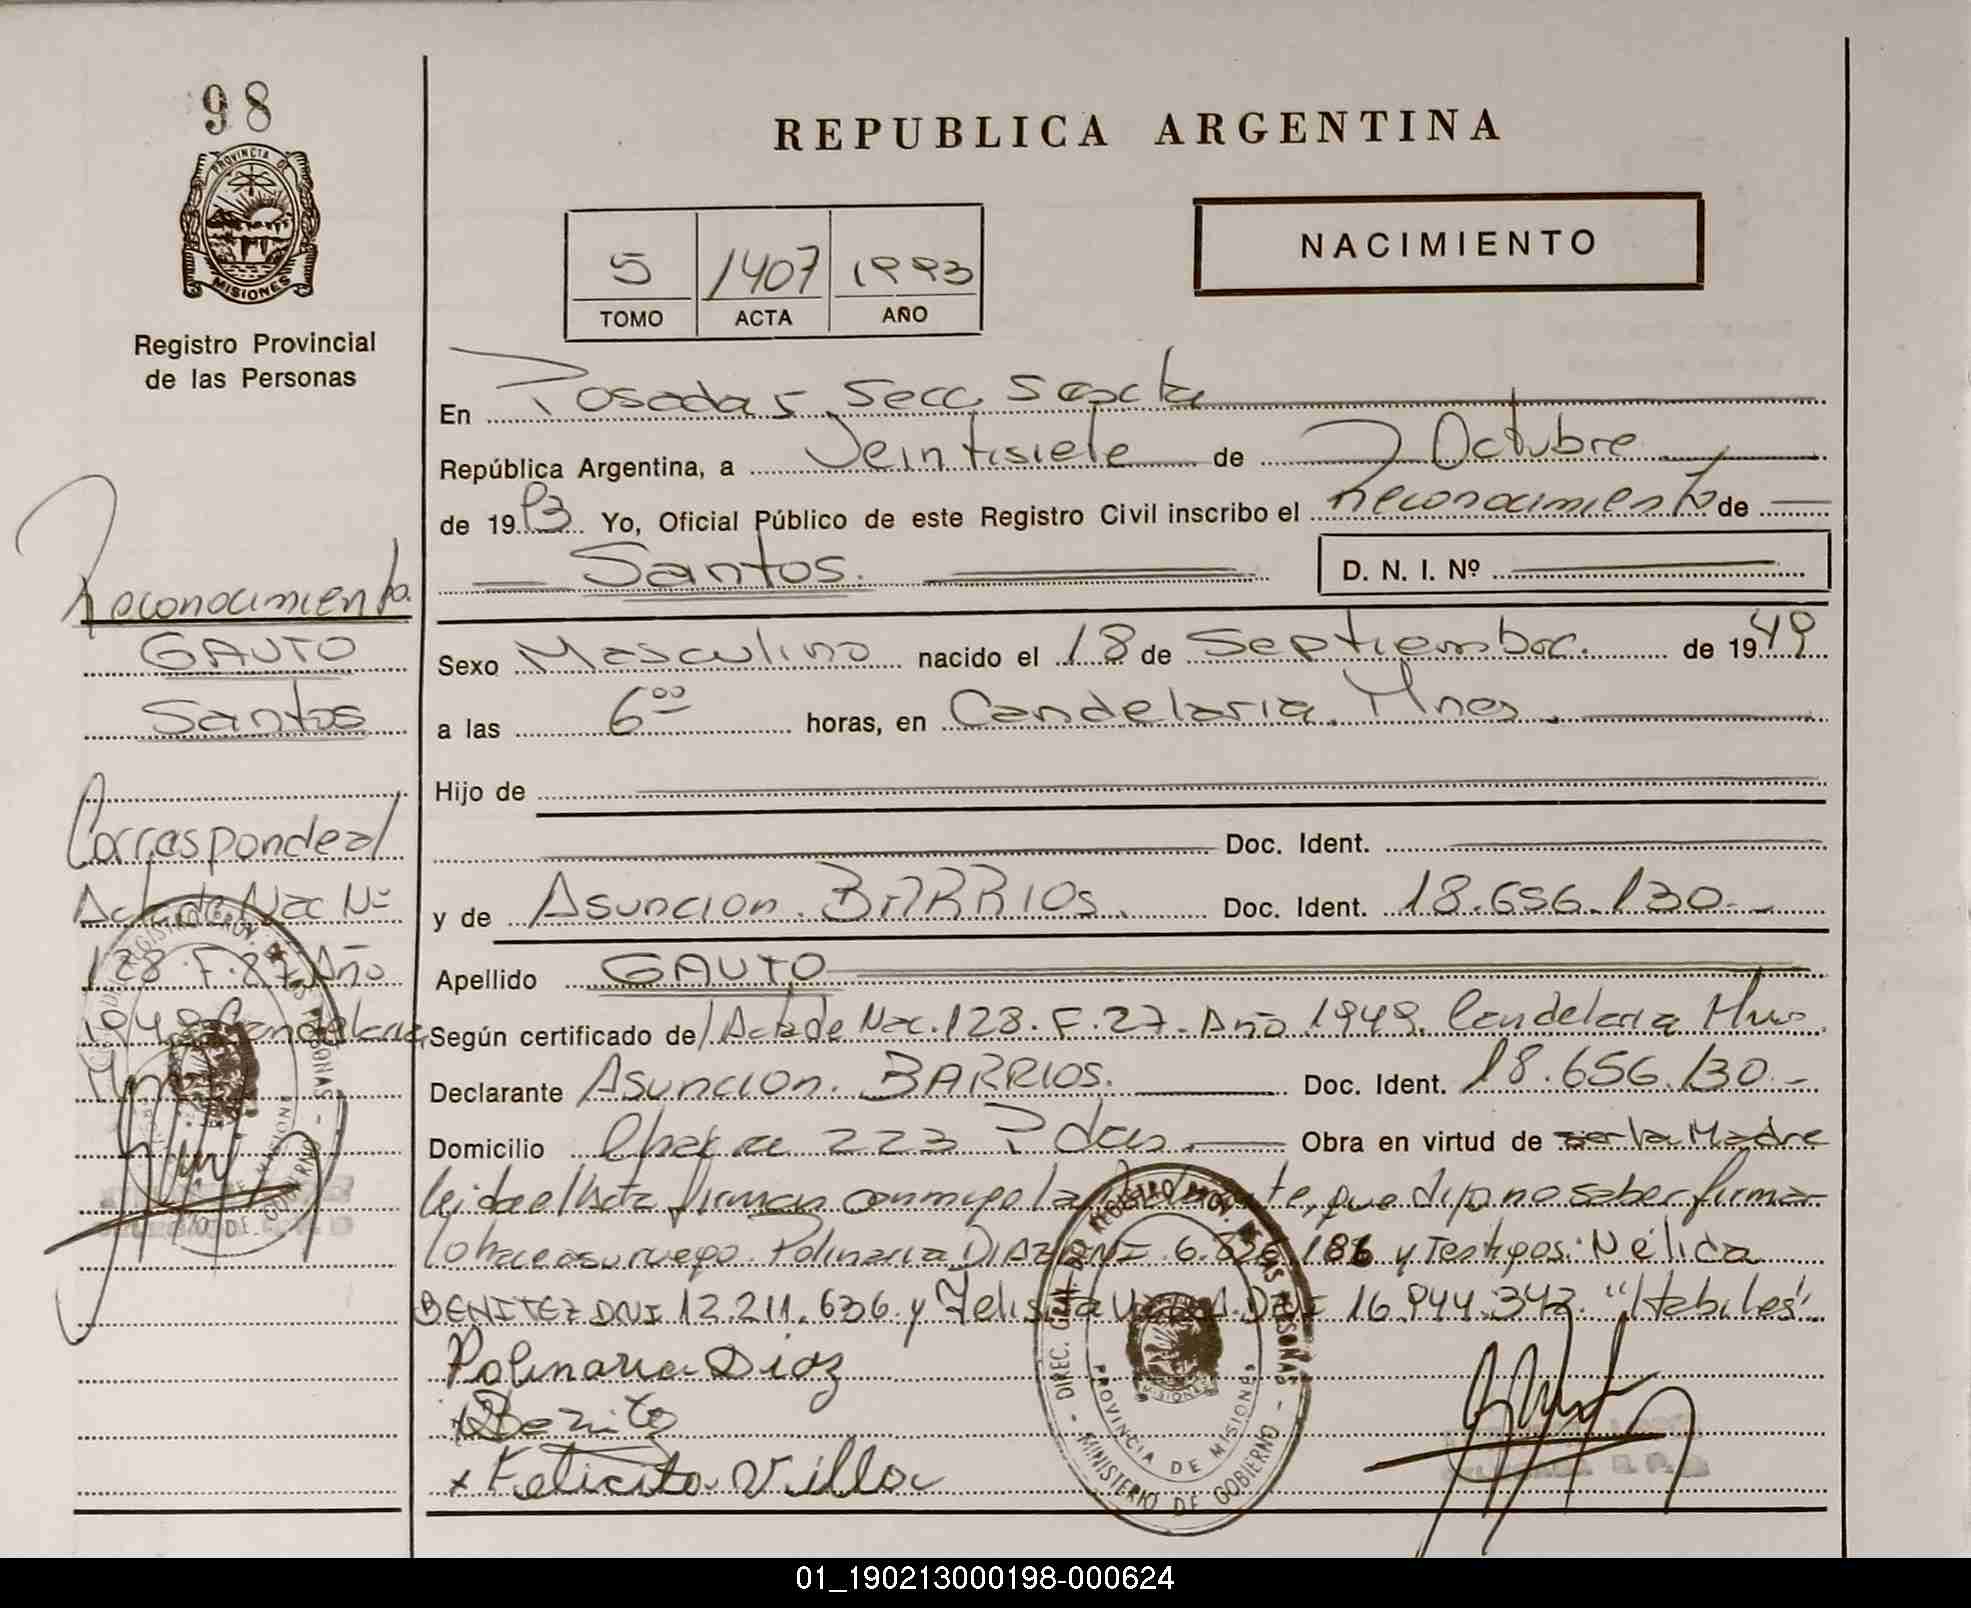 98
PROVINCIA DE
MISIONES
Registro Provincial
de las Personas
REPUBLICA ARGENTINA
5 1407 1993
TOMO ACTA AÑO
NACIMIENTO
En Posadas, Secc. Sexta
República Argentina, a Veintisiete de Octubre
de 1993 Yo, Oficial Público de este Registro Civil inscribo el Reconocimiento de
Santos. D. N. I. Nº
Sexo Masculino nacido el 18 de Septiembre. de 1949
a las 6⁰⁰ horas, en Candelaria. Mnes.
Hijo de
Doc. Ident.
y de Asuncion. BARRIOS. Doc. Ident. 18.656.130.-
Apellido GAUTO
Según certificado de Acta de Nac. 128. F. 27. Año 1949. Candelaria Mnes.
Declarante Asuncion. BARRIOS. Doc. Ident. 18.656.130.-
Domicilio 223 Pdas. Obra en virtud de ser la Madre
Leida el Acta firman conmigo la te, que dijo no saber firmar
lo hace a su ruego. Polinaria DIAZ DNI. 6. 186 y Testigos: Nélida
BENITEZ DNI 12.211.636. y DNI 16.944.342. "Habiles".
Polinaria Diaz
x Benitz
x Felicita Villa
Reconocimiento.
GAUTO
Santos
Corresponde al
Acta de Nac Nº
128. F. 27. Año
1949 Candelaria
Mnes
DIREC. GRAL. DEL REGISTRO PROV. DE LAS PERSONAS
PROVINCIA DE MISIONES
MINISTERIO DE GOBIERNO
01_190213000198-000624